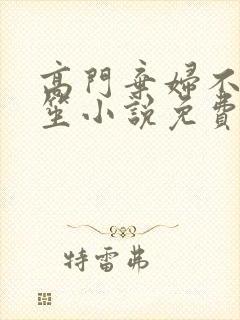 高門棄婦不
笙小說免費
特雷弗